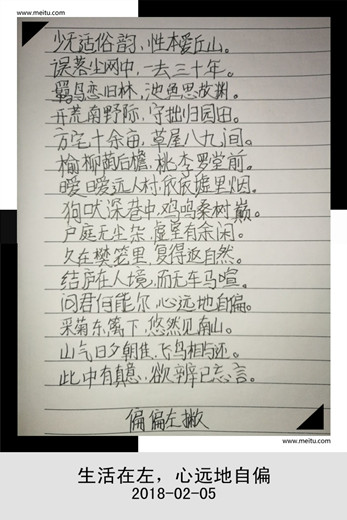 www.meitu.com
少无适俗韵，性本爱丘山。
误落尘网中，一去三十年。
羁鸟恋旧林，池鱼思故渊。
开荒南野际，守拙归园田。
方宅十余亩，草屋八九间。
榆柳荫后檐，桃李罗堂前。
暧暧远人村，依依墟里烟。
狗吠深巷中，鸡鸣桑树巅。
户庭无尘杂，虚室有余闲。
久在樊笼里，复得返自然。
结庐在人境，而无车马喧。
问君何能尔，心远地自偏。
采菊东篱下，悠然见南山。
山气日夕佳，飞鸟相与还。
此中有真意，欲辨已忘言。
偏偏左撇
www.meitu.com
生活在左，心远地自偏
2018-02-05